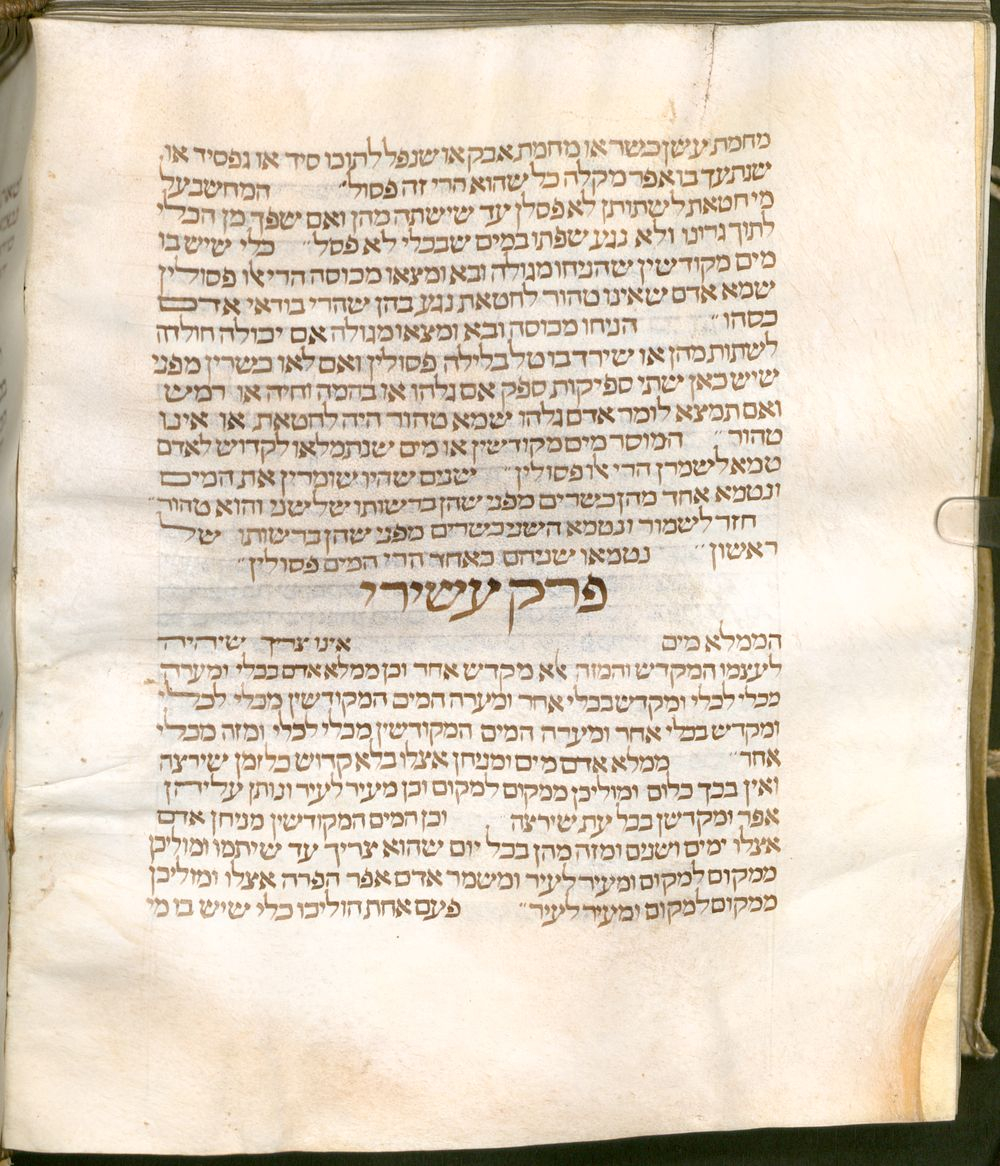 מחמת עשן כשר או מחמת אבק או שנפל לתוכו סיד או גפסיד או
שנתעך בו אפר מקלה כל שהוא הרי זה פסול״ המחשב על
מי חטאת לשתותן לא פסלן עד שישתה מהן ואם שפך מן הכלי
לתוך גרונו ולא נגע שפתו במים שבכלי לא פסל״ כלי שיש בו
מים מקודשין שהניחו מגולה ובא ומצאו מכוסה הרי אלו פסולין
שמא אדם שאינו טהור לחטאת נגע בהן שהרי בודאי אדם
כסהו״ הניחו מכוסה ובא ומצאו מגולה אם יכולה חולדה
לשתות מהן או שירד בו טל בלילה פסולין ואם לאו כשרין מפני
שיש כאן שתי ספיקות ספק אם גלהו או בהמה וחיה או רמיש
ואם תמצא לומר אדם גלהו שמא טהור היה לחטאת או אינו
טהור״ המוסר מים מקודשין או מים שנתמלאו לקדוש לאדם
טמא לשמרן הרי אלו פסולין״ שנים שהיו שומרין את המים
ונטמא אחד מהן כשרים מפני שהן ברשותו של שני והוא טהור״
חזר לשמור ונטמא השני כשרים מפני שהן ברשותו של
ראשון״ נטמאו שניהם כאחד הרי המים פסולין״
פרק עשירי
הממלא מים אינו צריך שיהיה
לעצמו המקדש והמזה אלא מקדש אחד וכן ממלא אדם בכלי ומערה
מכלי לכלי ומקדש בכלי אחר ומערה המים המקודשין מכלי לכלי
ומקדש בכלי אחר ומערה המים המקודשין מכלי לכלי ומזה מכלי
אחר״ ממלא אדם מים ומניחן אצלו בלא קדוש כל זמן שירצה
ואין בכך כלום ומוליכן ממקום למקום וכן מעיר לעיר ונותן עליהן
אפר ומקדשן בכל עת שירצה״ וכן המים המקודשין מניחן אדם
אצלו ימים ושנים ומזה מהן בכל יום שהוא צריך עד שיתמו ומוליכן
ממקום למקום ומעיר לעיר ומשמר אדם אפר הפרה אצלו ומוליכן
ממקום למקום ומעיר לעיר״ פעם אחת הוליכו כלי שיש בו מי